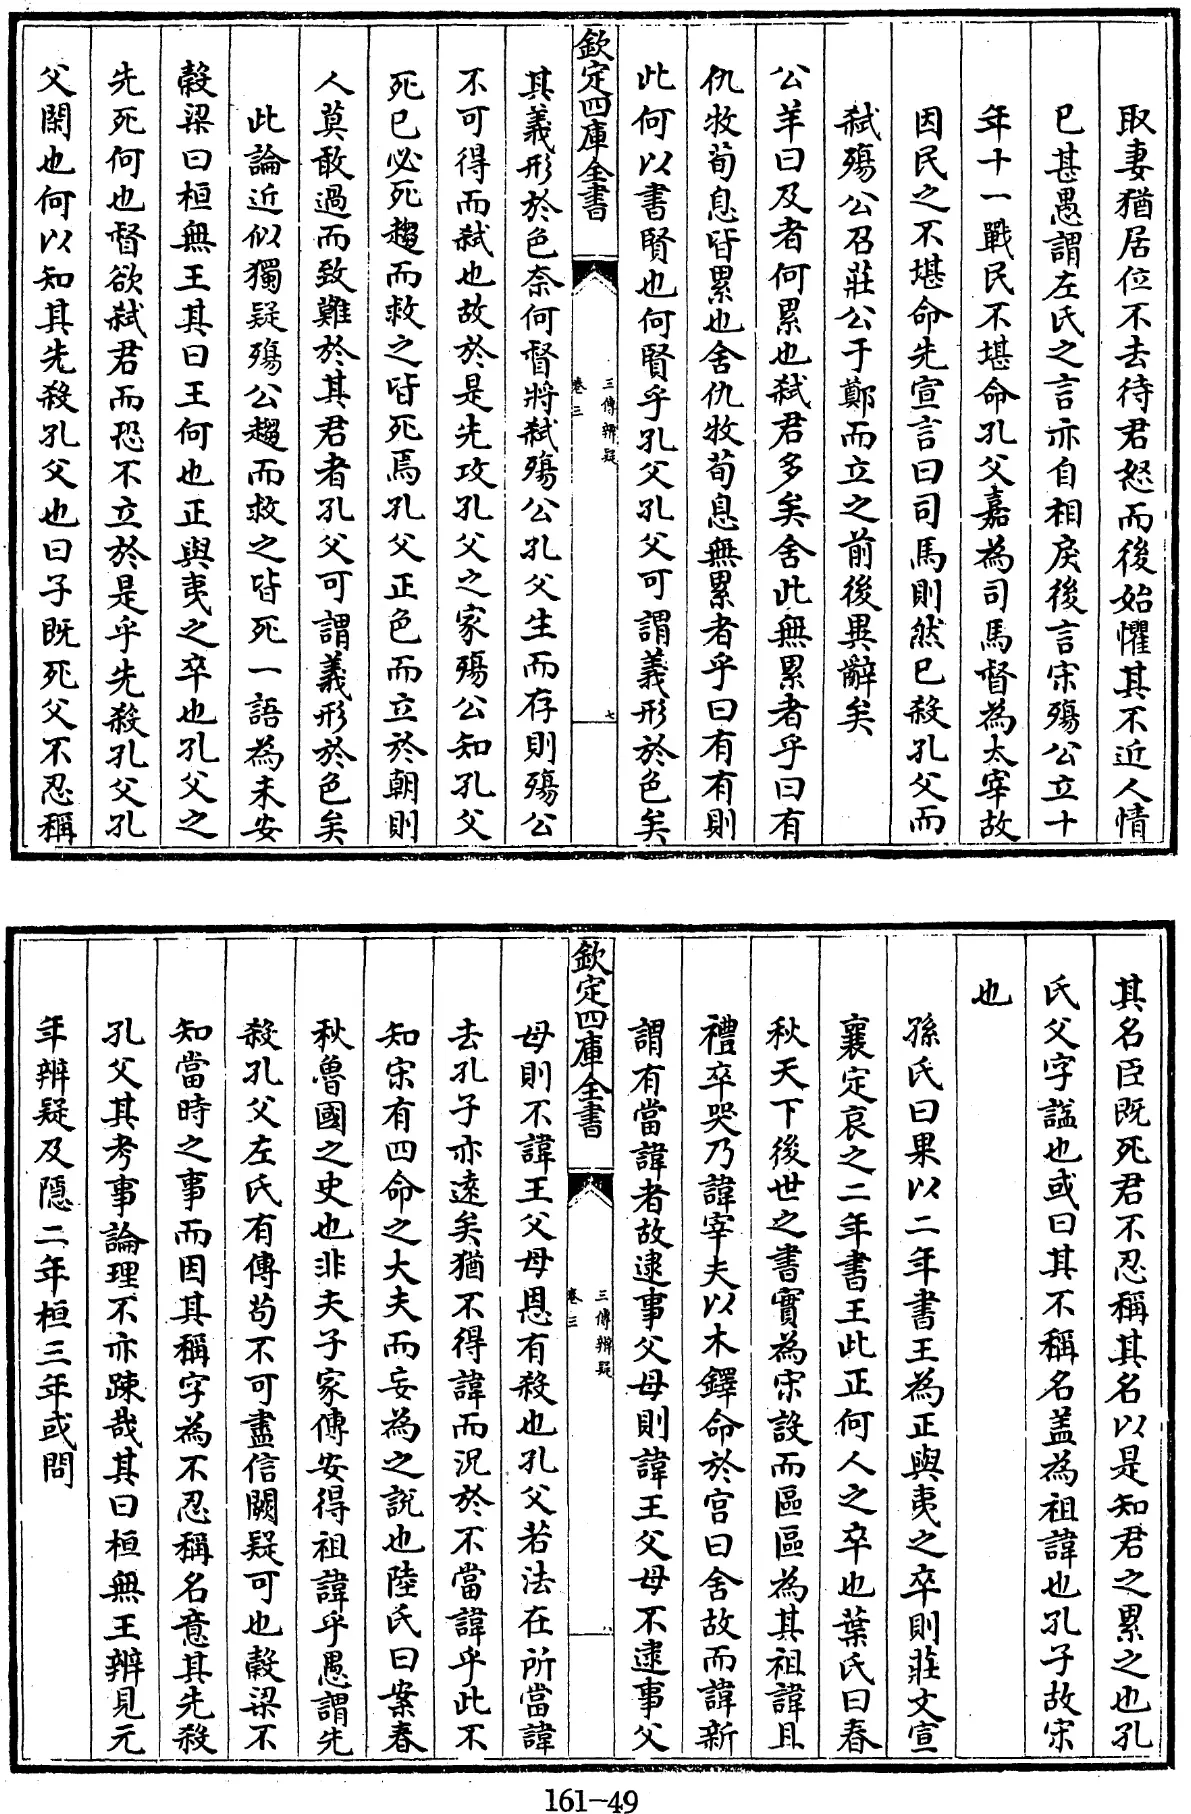 取妻猶居位不去待君怒而後始懼其不近人情
已甚愚謂左氏之言亦自相戾後言宋殤公立十
年十一戰民不堪命孔父嘉為司馬督為太宰故
因民之不堪命先宣言曰司馬則然已殺孔父而
弑殤公召莊公于鄭而立之前後異辭矣
公羊曰及者何累也弑君多矣舍此無累者乎曰有
仇牧荀息皆累也舍仇牧荀息無累者乎曰有有則
此何以書賢也何賢乎孔父孔父可謂義形於色矣
欽定四庫全書
三傳辨疑
卷三
七
其義形於色奈何督將弑殤公孔父生而存則殤公
不可得而弑也故於是先攻孔父之家殤公知孔父
死已必死趨而救之皆死焉孔父正色而立於朝則
人莫敢過而致難於其君者孔父可謂義形於色矣
此論近似獨疑殤公趨而救之皆死一語為未安
穀梁曰桓無王其曰王何也正與夷之卒也孔父之
先死何也督欲弑君而恐不立於是乎先殺孔父孔
父閑也何以知其先殺孔父也曰子既死父不忍稱
其名臣既死君不忍稱其名以是知君之累之也孔
氏父字諡也或曰其不稱名蓋為祖諱也孔子故宋
也
孫氏曰果以二年書王為正與夷之卒則莊文宣
襄定哀之二年書王此正何人之卒也葉氏曰春
秋天下後世之書實為宋設而區區為其祖諱且
禮卒哭乃諱宰夫以木鐸命於宮曰舍故而諱新
謂有當諱者故逮事父母則諱王父母不逮事父
欽定四庫全書
三傳辨疑
卷三
八
母則不諱王父母恩有殺也孔父若法在所當諱
去孔子亦遠矣猶不得諱而況於不當諱乎此不
知宋有四命之大夫而妄為之說也陸氏曰案春
秋魯國之史也非夫子家傳安得祖諱乎愚謂先
殺孔父左氏有傳苟不可盡信闕疑可也穀梁不
知當時之事而因其稱字為不忍稱名意其先殺
孔父其考事論理不亦踈哉其曰桓無王辨見元
年辨疑及隱二年桓三年或問
161-49